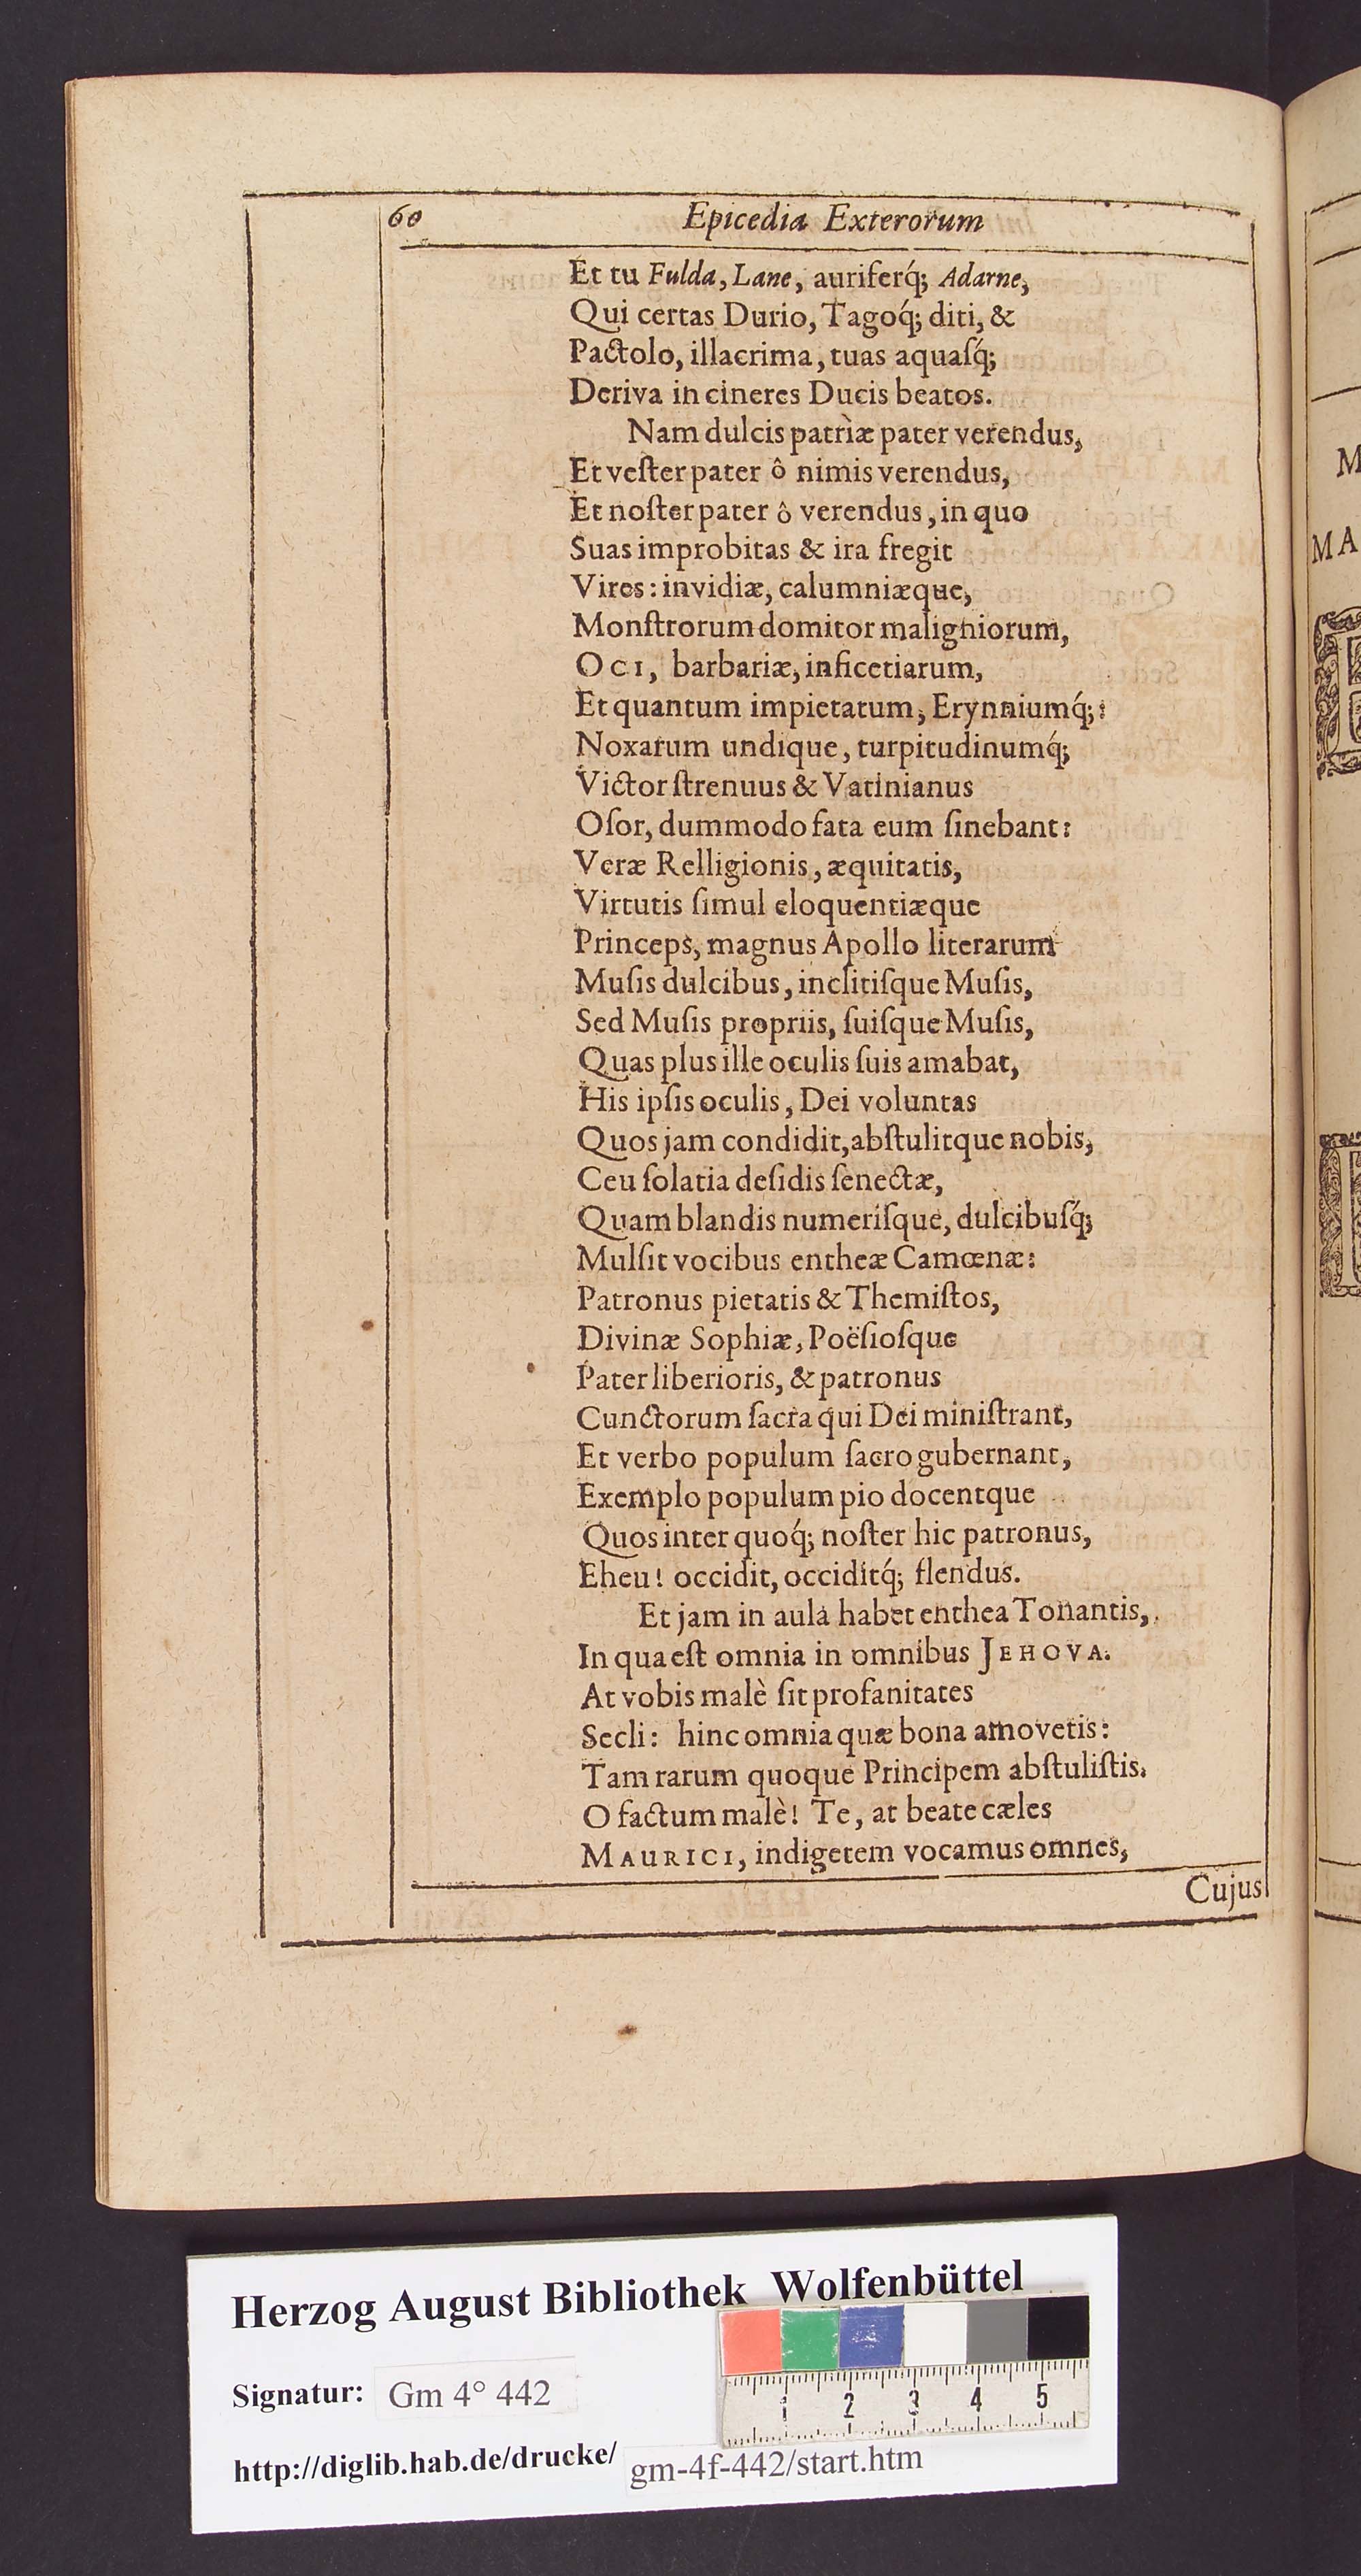 60 Epicedia Exterorum
Et tu Fulda, Lane, auriferq́; Adarne,
Qui certas Durio, Tagoq́; diti, &
Pactolo, illacrima, tuas aquaſq́;
Deriva in cineres Ducis beatos.
Nam dulcis patrìæ pater verendus,
Et veſter pater ô nimis verendus,
Et noſter pater ô verendus, in quo
Suas improbitas & ira fregit
Vires: invidiæ, calumniæque,
Monſtrorum domitor maligniorum,
OCI, barbariæ, inficetiarum,
Et quantum impietatum, Erynniumq́;:
Noxarum undique, turpitudinumq́;
Victor ſtrenuus & Vatinianus
Oſor, dummodo fata eum ſinebant:
Veræ Relligionis, æquitatis,
Virtutis ſimul eloquentiæque
Princeps, magnus Apollo literarum
Muſis dulcibus, inclitiſque Muſis,
Sed Muſis propriis, ſuiſque Muſis,
Quas plus ille oculis ſuis amabat,
His ipſis oculis, Dei voluntas
Quos jam condidit, abſtulitque nobis,
Ceu ſolatia deſidis ſenectæ,
Quam blandis numeriſque, dulcibuſq́;
Mulſit vocibus entheæ Camœnæ:
Patronus pietatis & Themiſtos,
Divinæ Sophiæ, Poëſioſque
Pater liberioris, & patronus
Cunctorum ſacra qui Dei miniſtrant,
Et verbo populum ſacro gubernant,
Exemplo populum pio docentque
Quos inter quoq́; noſter hic patronus,
Eheu! occidit, occiditq́; flendus.
Et jam in aulâ habet enthea Tonantis,
In qua eſt omnia in omnibus JEHOVA.
At vobis malè ſit profanitates
Secli: hinc omnia quæ bona amovetis:
Tam rarum quoque Principem abſtuliſtis.
O factum malè! Te, at beate cæles
MAURICI, indigetem vocamus omnes,
Cujus
M
MA
Herzog August Bibliothek Wolfenbüttel
Signatur: Gm 4° 442
http://diglib.hab.de/drucke/ gm-4f-442/start.htm
1 2 3 4 5